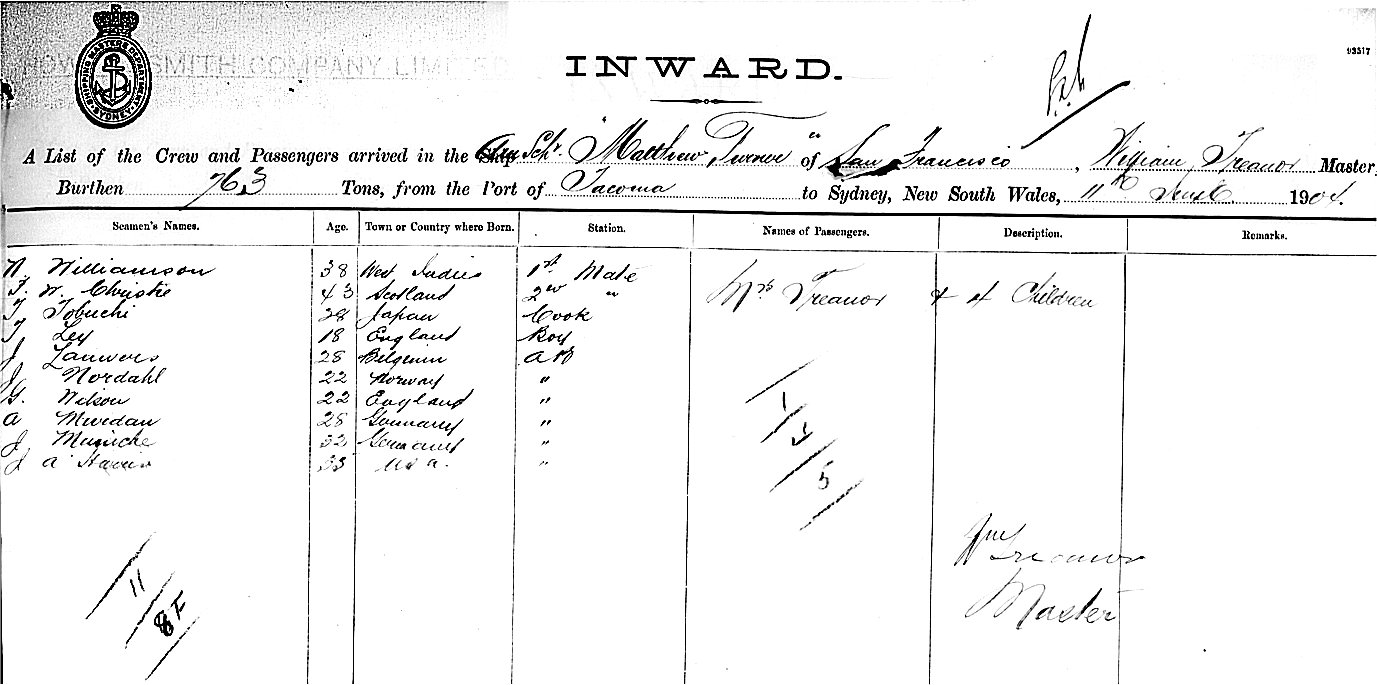 SHIPPING MASTER'S DEPARTMENT SYDNEY
SMITH COMPANY LIMITED
INWARD.
93517
A List of the Crew and Passengers arrived in the Ship Schr. "Matthew Turner" of San Francisco, William Treanor Master,
Burthen 763 Tons, from the Port of Tacoma to Sydney, New South Wales, 11th Sept 1904.
Seamen's Names. Age. Town or Country where Born. Station. Names of Passengers. Description. Remarks.
N. Williamson 38 West Indies 1st Mate
F. W. Christie 43 Scotland 2nd "
Mrs Treanor + 4 Children
T Tobuchi 28 Japan Cook
T Ley 18 England Boy
J Lauwers 28 Belgium AB
J Nordahl 22 Norway "
G. Wilson 22 England "
A 28 Germany "
J 32 Germany "
J A Harris 33 USA. "
1
4
5
Wm Treanor
Master
11